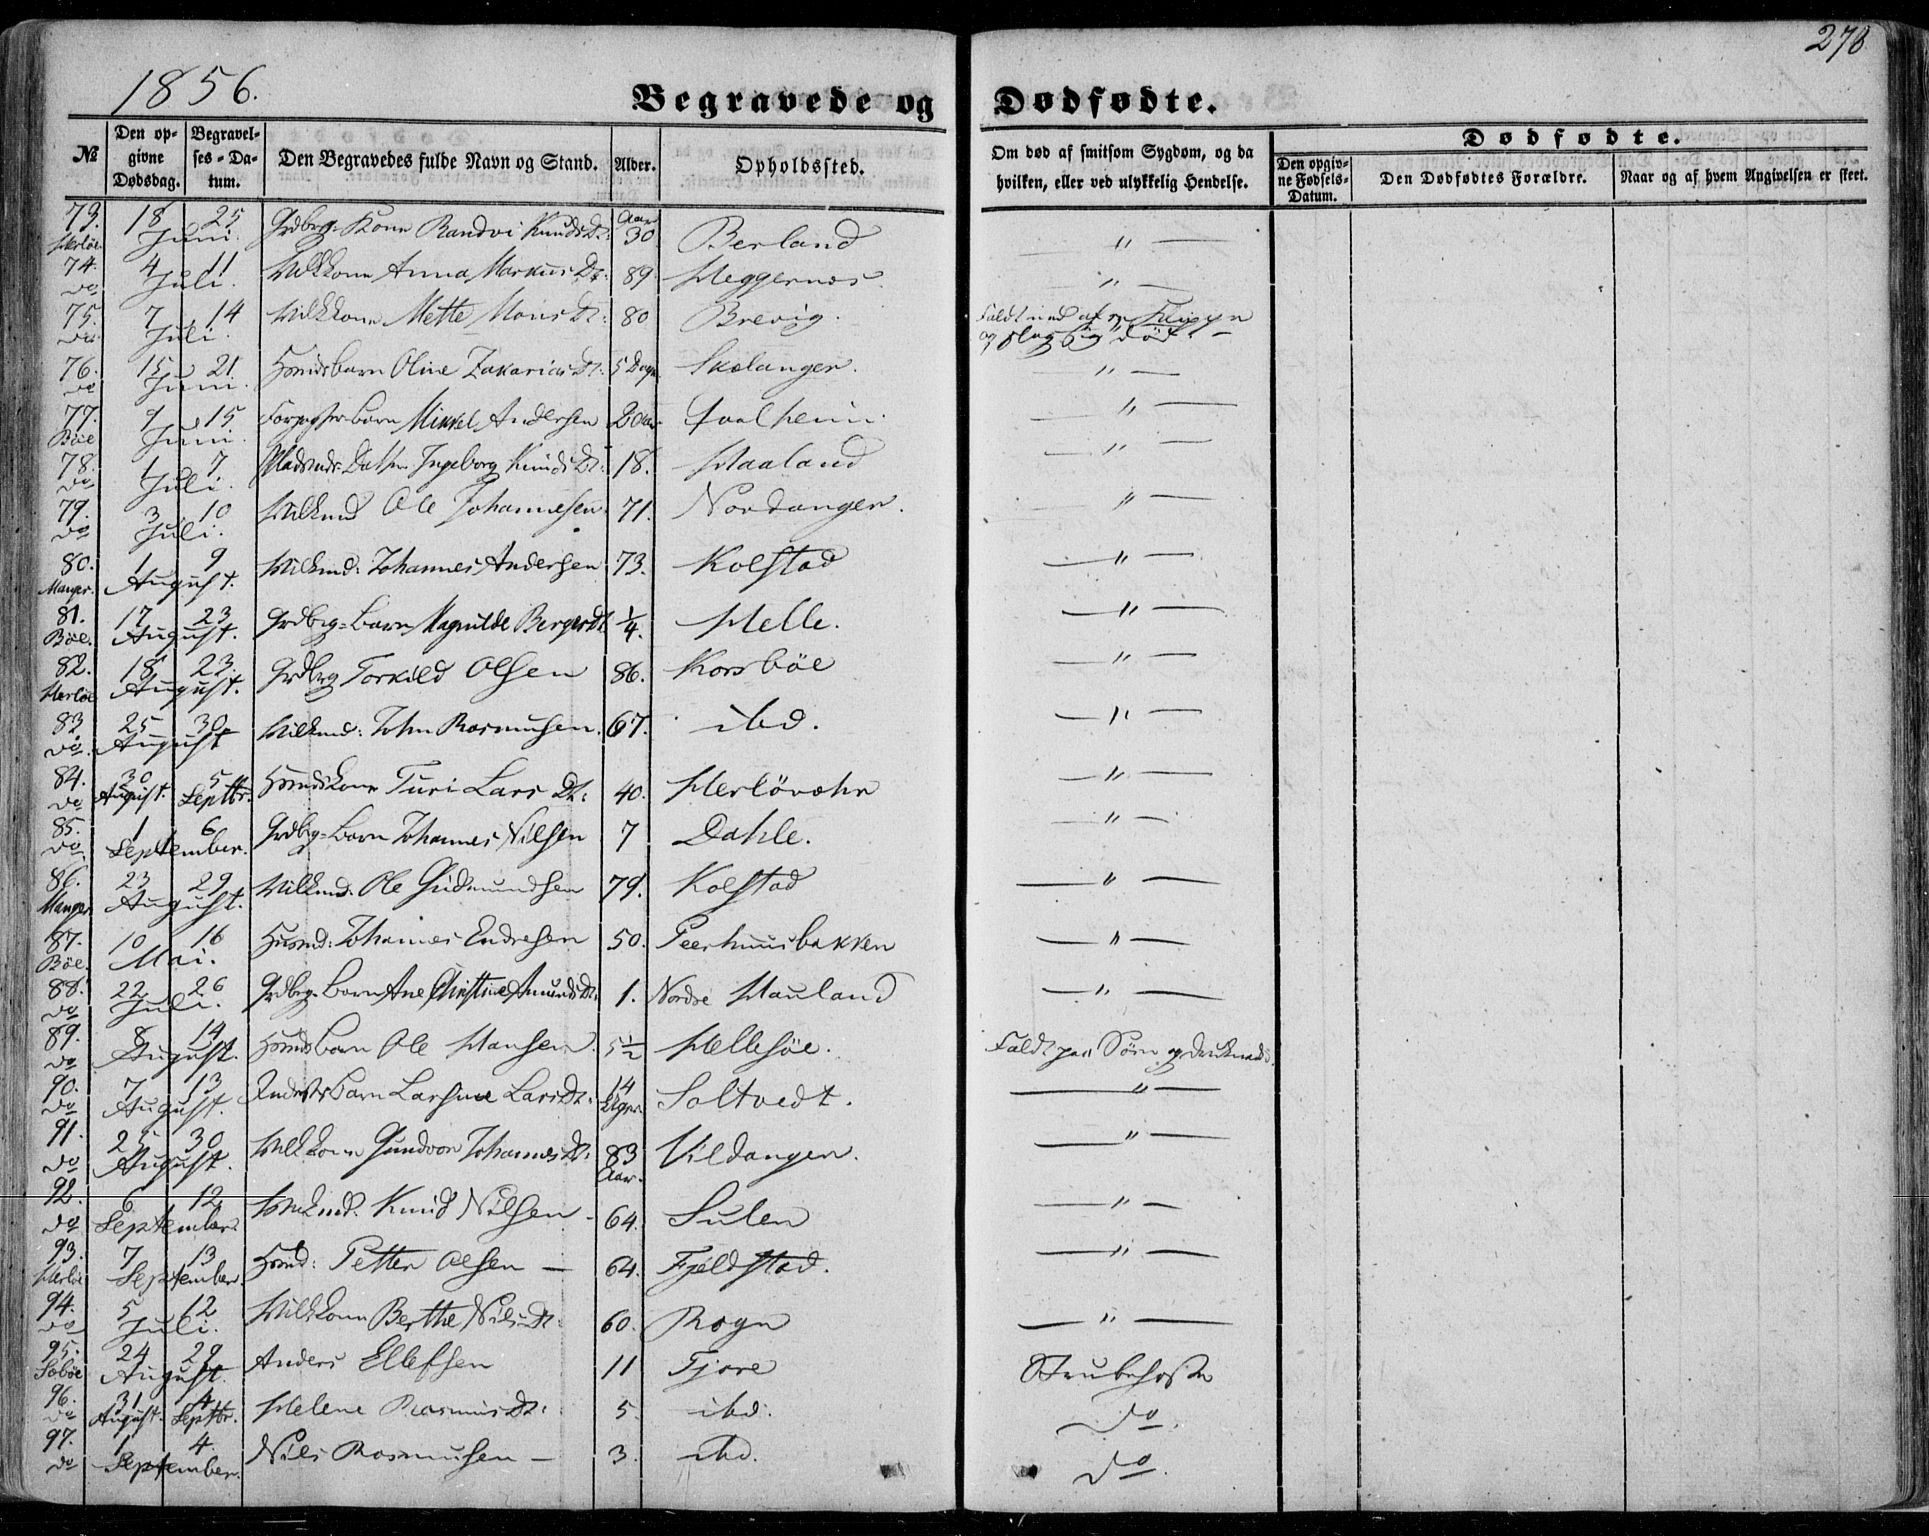 278
1856.
Begravede og Dødfødte.
Dødfødte.
№ Den opgivne Dødsdag. Begravelses-Datum. Den Begravedes fulde Navn og Stand. Alder. Opholdssted. Om død af smitsom Sygdom, og da hvilken, eller ved ulykkelig Hendelse. Den opgivne Fødsels-Datum. Den Dødfødtes Forældre. Naar og af hvem Angivelsen er skeet.
73. Herløe 18 25 Juni. Grdbrg: Kone Randvi Knuds Dt: Aar 30 Berland — " —
74. do 4 11 Juli. Vilkkone Anna Markus Dt: 89. Heggernæs. — " —
75. do 7 14 Juli. Vilkkone Mette Mons Dt: 80 Brevig. Faldt ned af en Klippe og slog sig død. —
76. do 15 21. Juni. Huusmdsbarn Oline Zakarias Dt: 5 Dage Skolanger. — " —
77. Böe 9 15 Juni. Barn Mikkel Andersen 2 Aar — " —
78. do 1 7 Juli. Pladsmds: Datter Ingeborg Knuds Dt: 18. Haaland — " —
79. do 3 10 Juli. Vilkmd Ole Johannesen 71. Nordanger. — " —
80. Manger. 1 9 August. Vilkmd: Johannes Andersen 73. Kolstad — " —
81. Böe. 17 23 August. Grdbrg: Barn Magnilde Berger Dt: 1/4. Helle. — " —
82. Herløe 18 23. August. Grdbrg Torkild Olsen 86. Korsböe — " —
83. do. 25 30 August Vilkmd: John Rasmusen. 67. ibd. — " —
84. do 30 August. 5 Septbr. Huusmdskone Turi Lars Dt: 40. Herlövær — " —
85. do 1 6 September. Grdbrg: Barn Johannes Nilsen 7 Dahle. — " —
86. Manger 23 29 August. Vilkmd: Ole Gudmundsen 79. Kolstad — " —
87. Böe. 10 16 Mai. Huusmd: Johannes Endresen 50. Peerhuusbakken — " —
88. do 22 26 Juli. Grdbrg: Barn Ane Christine Amunds Dt: 1. Nordre Hauland — " —
89. do 8 14 August. Huusmdsbarn Ole Hansen. 5 1/2 Hellesöe. Faldt paa Söen og druknede.
90. do 7 13 August. Barn Larsine Lars Dt: 14 Dage. Soltvedt. — " —
91. do 25 30 August. Vilkkone Gundvor Johannes Dt: 83 Aar. Vildanger. — " —
92. do 6 12 September. Vilkmd: Knud Nilsen — 64. Sulen — " —
93. Herløe 7 13 September. Huusmd: Petter Olsen — 64. Fjeldstad. — " —
94. do 5 12 Juli. Vilkkone Berthe Nils Dt: 60. Rogn — " —
95. Sæböe 24 29 August. Anders Ellefsen 11 Fjore Strubehoste
96. do 31 August. 4 Septbr. Helene Rasmus Dt: 5. ibd. do.
97. do 1 4. September. Nils Rasmusen — 3. ibd. do.